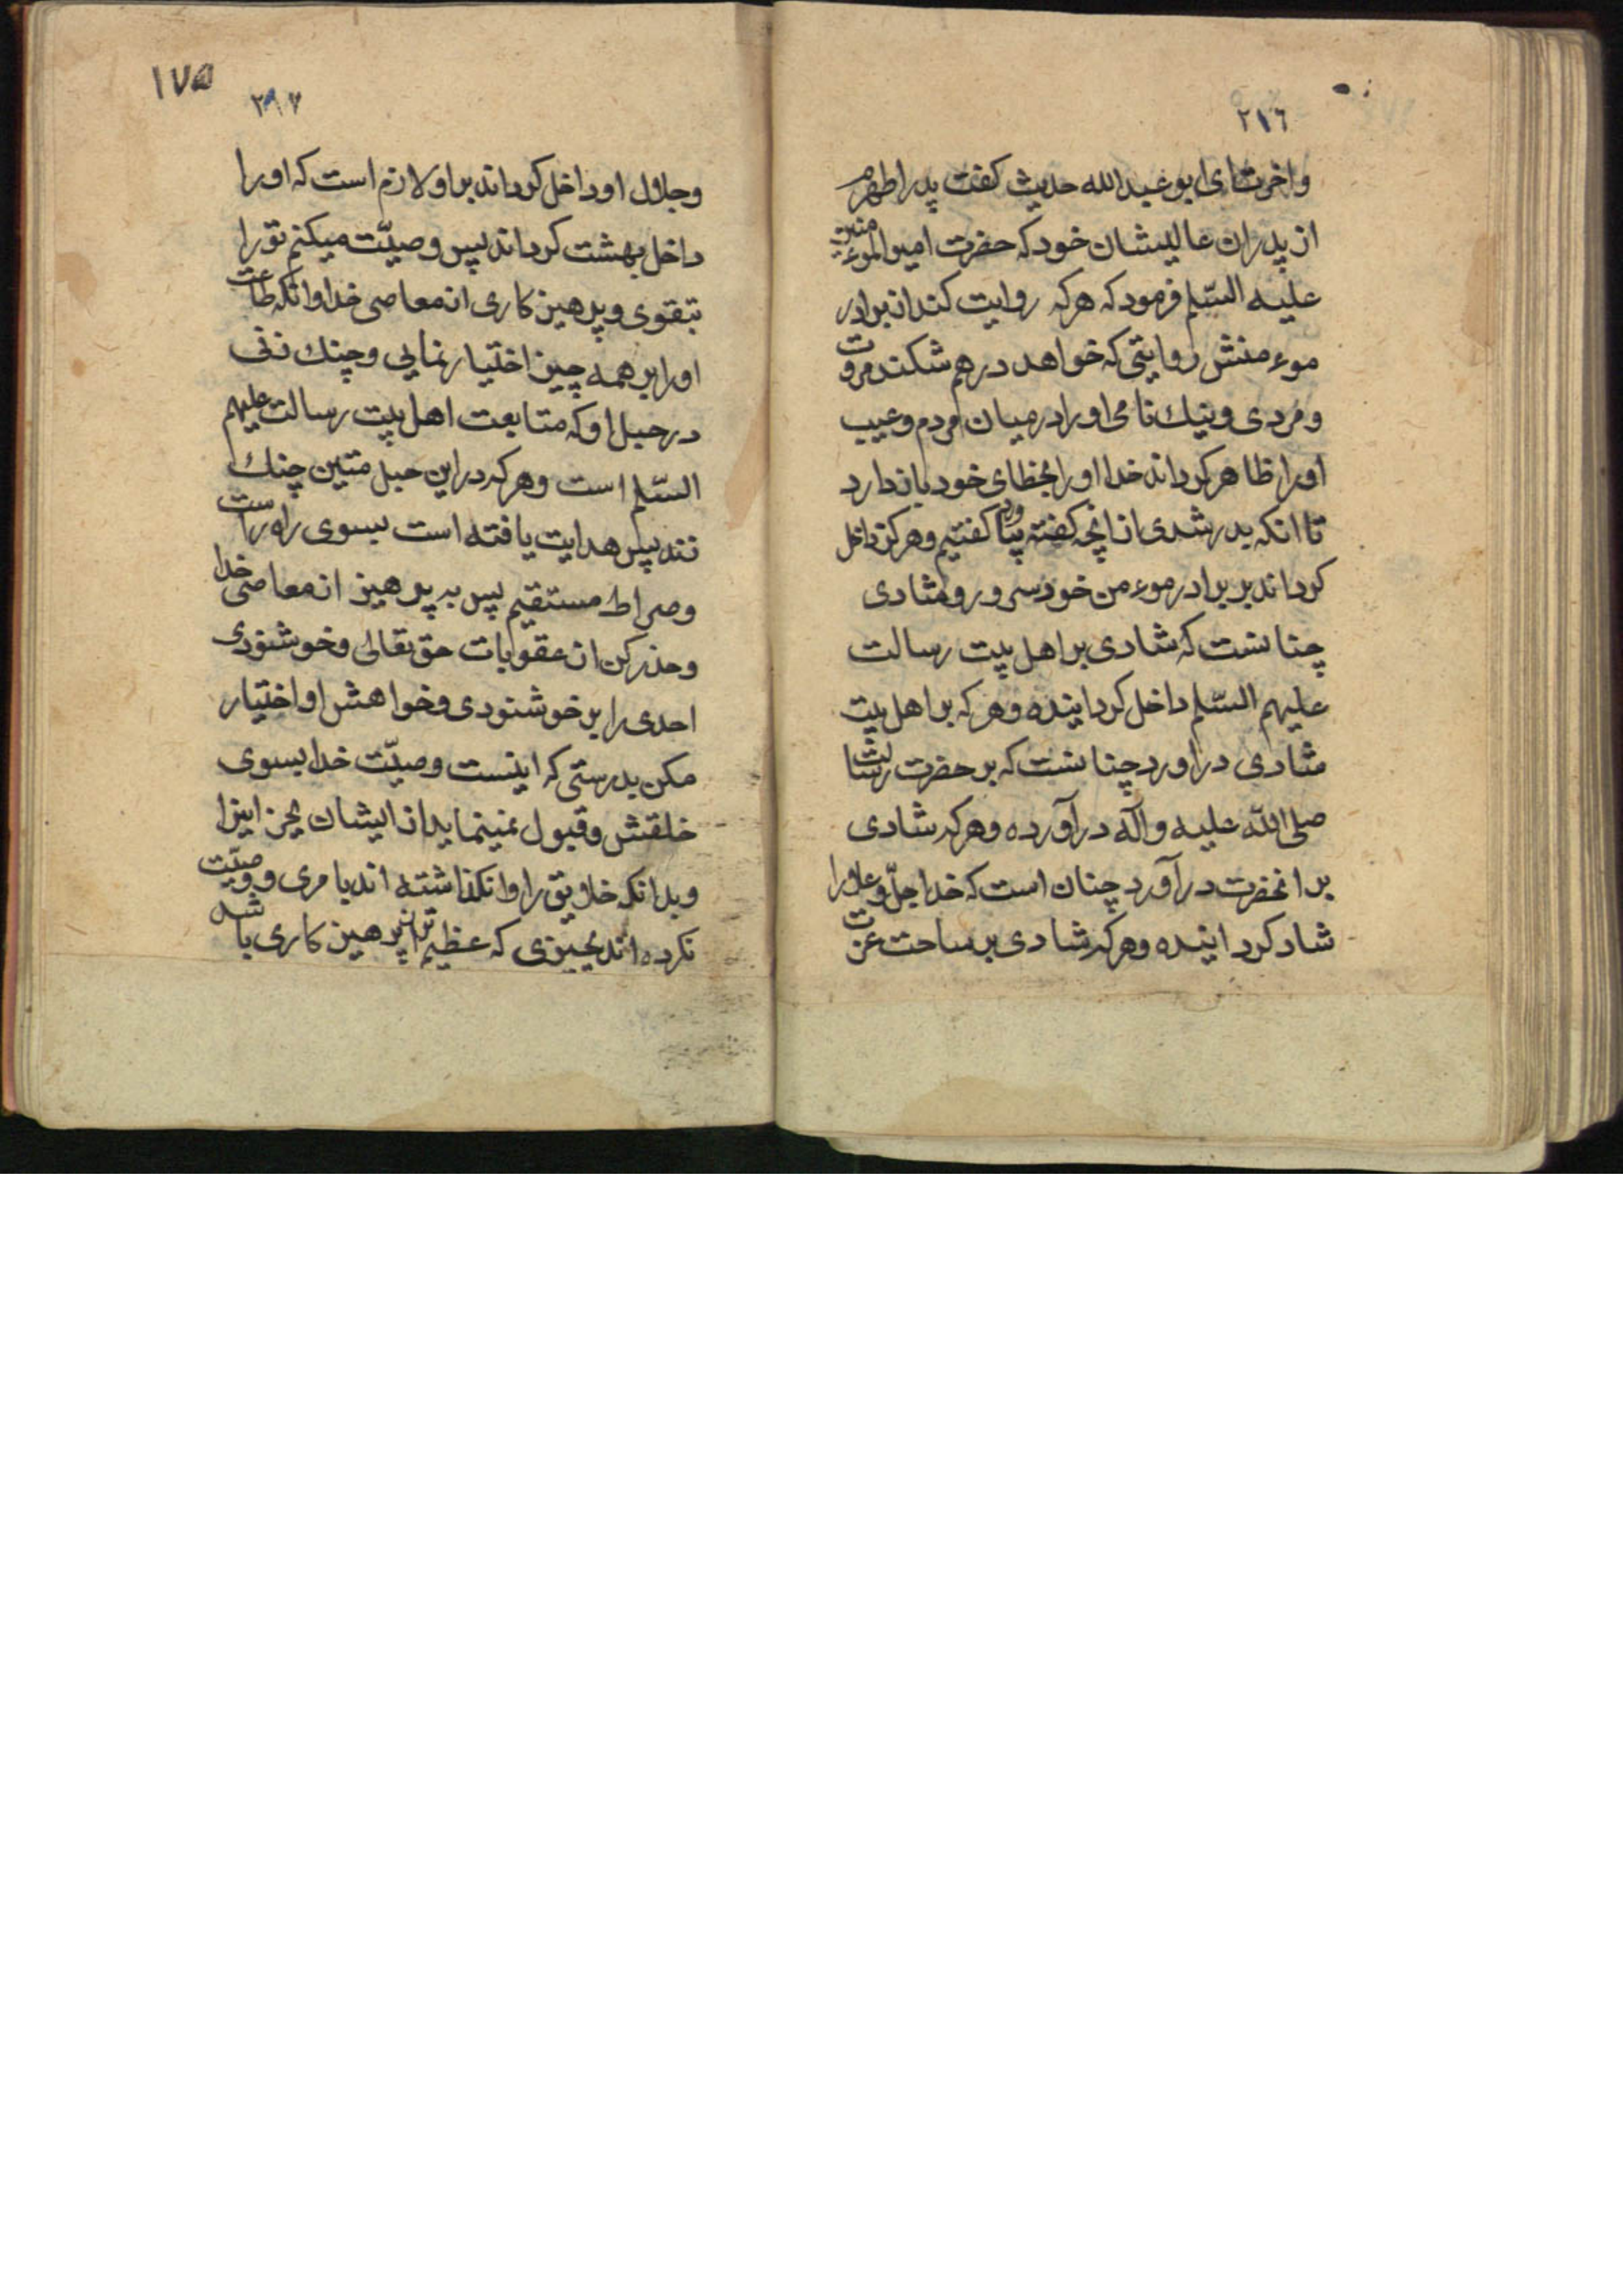 ۲۱۶
واخرت ای ابو عبدالله حدیث کفت پدر اطهرم
از پدران عالیشان خود که حضرت امیر الموءمنین
علیه السّلم فرمود که هرکه روایت کند از برادر
موءمنش روایتی که خواهد درهم شکند مروت
و مردی و نیك نامی او را در میان مردم و عیب
او را ظاهر کرداند خدا او را بخطای خود بازدارد
تا انکه بدر رشدی از انچه کفته و هرکز داخل
کرداند بر برادر موءمن خود سرور و شادی
چنانست که شادی بر اهل بیت رسالت
علیهم السّلم داخل کردانیده و هرکه بر اهل بیت
شادی دراورد چنانست که بر حضرت رسالت
صلی الله علیه وآله درآورده و هرکه شادی
بر انحضرت درآورد چنان است که خدا جلّ و علا را
شاد کردانیده و هرکه شادی بر ساحت عزت
۱۷۵
۲۱۷
وجلال او داخل کرداند بر او لازم است که او را
داخل بهشت کرداند پس وصیّت میکنم تو را
بتقوی و پرهیز کاری از معاصی خدا وانکه طاعت
او را بر همه چیز اختیار نمایی و چنك زنی
در حبل او که متابعت اهل بیت رسالت علیهم
السّلم است و هرکه در این حبل متین چنك
زند پس هدایت یافته است بسوی راه راست
و صراط مستقیم پس بپرهیز از معاصی خدا
و حذر کن از عقوبات حق تعالی و خوشنودی
احدی را بر خوشنودی و خواهش او اختیار
مکن بدرستی که اینست وصیّت خدا بسوی
خلقش و قبول نمینماید از ایشان بجز اینرا
و بدانکه خلایق را وانکذاشته اند بامری و وصیّت
نکرده اند بچیزی که عظیم تر از پرهیز کاری باشد